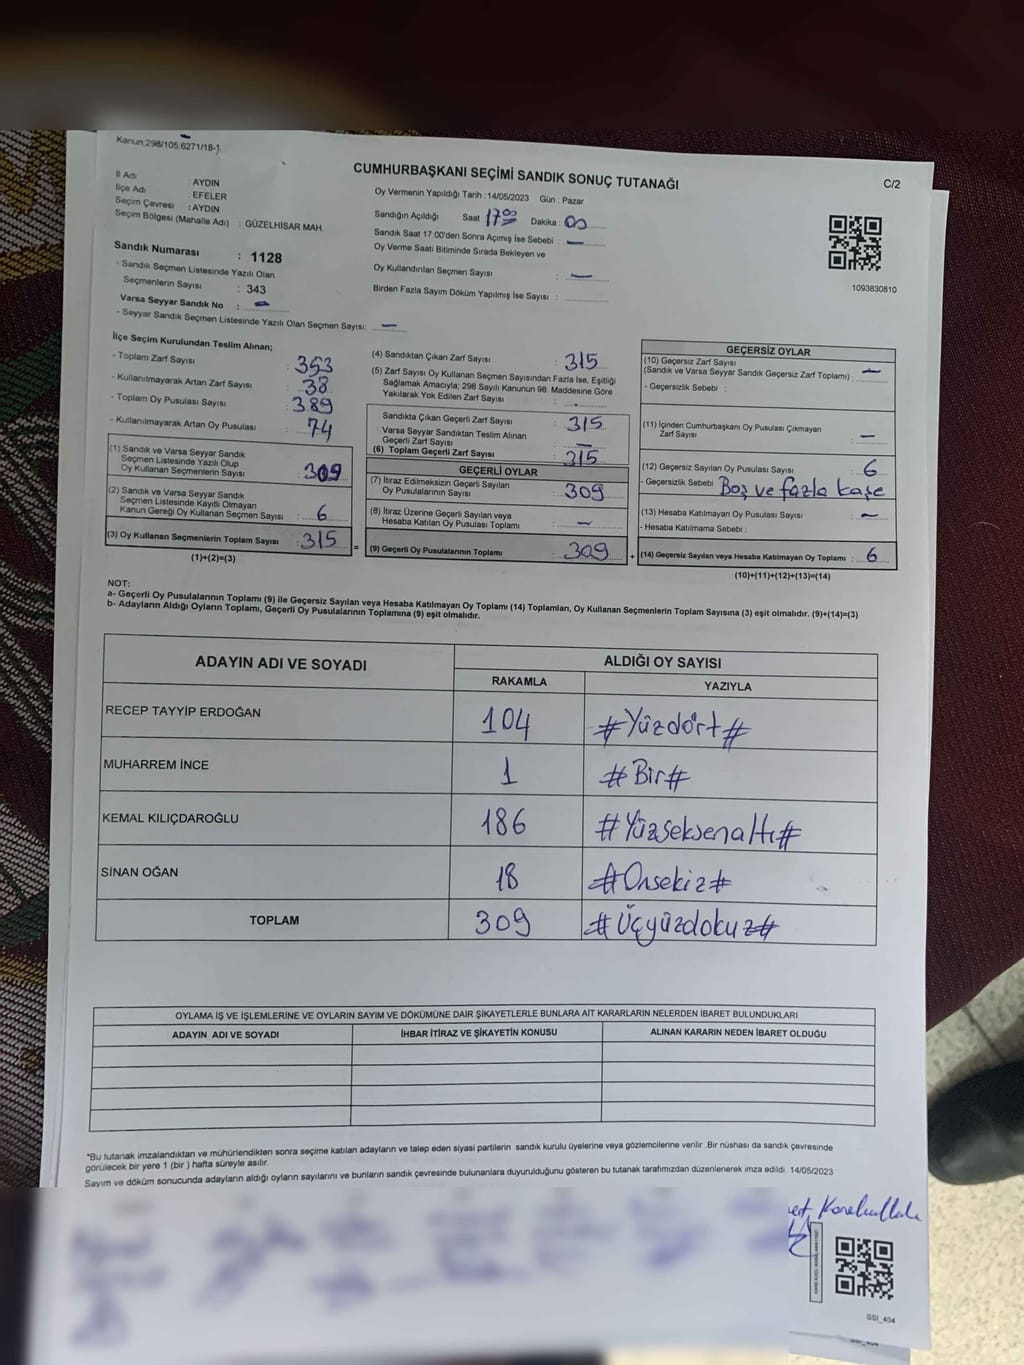 Kanun:298/105,6271/18-1
CUMHURBAŞKANI SEÇİMİ SANDIK SONUÇ TUTANAĞI
C/2
İl Adı : AYDIN
İlçe Adı : EFELER
Seçim Çevresi : AYDIN
Seçim Bölgesi (Mahalle Adı) : GÜZELHİSAR MAH.
Oy Vermenin Yapıldığı Tarih : 14/05/2023 Gün : Pazar
Sandığın Açıldığı Saat 17:00 Dakika : 00
Sandık Saat 17:00'den Sonra Açımış İse Sebebi : —
Oy Verme Saati Bitiminde Sırada Bekleyen ve
Oy Kullandırılan Seçmen Sayısı : —
Birden Fazla Sayım Döküm Yapılmış İse Sayısı :
1093830810
Sandık Numarası : 1128
- Sandık Seçmen Listesinde Yazılı Olan
Seçmenlerin Sayısı : 343
Varsa Seyyar Sandık No : —
- Seyyar Sandık Seçmen Listesinde Yazılı Olan Seçmen Sayısı: —
İlçe Seçim Kurulundan Teslim Alınan;
- Toplam Zarf Sayısı : 353
- Kullanılmayarak Artan Zarf Sayısı : 38
- Toplam Oy Pusulası Sayısı : 389
- Kullanılmayarak Artan Oy Pusulası : 74
(1) Sandık ve Varsa Seyyar Sandık
Seçmen Listesinde Yazılı Olup
Oy Kullanan Seçmenlerin Sayısı : 309
(2) Sandık ve Varsa Seyyar Sandık
Seçmen Listesinde Kayıtlı Olmayan
Kanun Gereği Oy Kullanan Seçmen Sayısı : 6
(3) Oy Kullanan Seçmenlerin Toplam Sayısı : 315
(1)+(2)=(3)
(4) Sandıktan Çıkan Zarf Sayısı : 315
(5) Zarf Sayısı Oy Kullanan Seçmen Sayısından Fazla İse, Eşitliği
Sağlamak Amacıyla; 298 Sayılı Kanunun 98. Maddesine Göre
Yakılarak Yok Edilen Zarf Sayısı :
Sandıkta Çıkan Geçerli Zarf Sayısı : 315
Varsa Seyyar Sandıktan Teslim Alınan
Geçerli Zarf Sayısı : —
(6) Toplam Geçerli Zarf Sayısı : 315
GEÇERLİ OYLAR
(7) İtiraz Edilmeksizin Geçerli Sayılan
Oy Pusulalarının Sayısı : 309
(8) İtiraz Üzerine Geçerli Sayılan veya
Hesaba Katılan Oy Pusulası Toplamı : —
= (9) Geçerli Oy Pusulalarının Toplamı : 309
GEÇERSİZ OYLAR
(10) Geçersiz Zarf Sayısı
(Sandık ve Varsa Seyyar Sandık Geçersiz Zarf Toplamı) : —
- Geçersizlik Sebebi :
(11) İçinden Cumhurbaşkanı Oy Pusulası Çıkmayan
Zarf Sayısı : —
(12) Geçersiz Sayılan Oy Pusulası Sayısı : 6
- Geçersizlik Sebebi : Boş ve fazla kaşe
(13) Hesaba Katılmayan Oy Pusulası Sayısı : —
- Hesaba Katılmama Sebebi :
+ (14) Geçersiz Sayılan veya Hesaba Katılmayan Oy Toplamı : 6
(10)+(11)+(12)+(13)=(14)
NOT:
a- Geçerli Oy Pusulalarının Toplamı (9) ile Geçersiz Sayılan veya Hesaba Katılmayan Oy Toplamı (14) Toplamları, Oy Kullanan Seçmenlerin Toplam Sayısına (3) eşit olmalıdır. (9)+(14)=(3)
b- Adayların Aldığı Oyların Toplamı, Geçerli Oy Pusulalarının Toplamına (9) eşit olmalıdır.
ADAYIN ADI VE SOYADI
ALDIĞI OY SAYISI
RAKAMLA YAZIYLA
RECEP TAYYİP ERDOĞAN 104 #Yüzdört#
MUHARREM İNCE 1 #Bir#
KEMAL KILIÇDAROĞLU 186 #Yüzseksenaltı#
SİNAN OĞAN 18 #Onsekiz#
TOPLAM 309 #Üçyüzdokuz#
OYLAMA İŞ VE İŞLEMLERİNE VE OYLARIN SAYIM VE DÖKÜMÜNE DAİR ŞİKAYETLERLE BUNLARA AİT KARARLARIN NELERDEN İBARET BULUNDUKLARI
ADAYIN ADI VE SOYADI İHBAR İTİRAZ VE ŞİKAYETİN KONUSU ALINAN KARARIN NEDEN İBARET OLDUĞU
*Bu tutanak imzalandıktan ve mühürlendikten sonra seçime katılan adayların ve talep eden siyasi partilerin sandık kurulu üyelerine veya gözlemcilerine verilir. Bir nüshası da sandık çevresinde
görülecek bir yere 1 (bir ) hafta süreyle asılır.
Sayım ve döküm sonucunda adayların aldığı oyların sayılarını ve bunların sandık çevresinde bulunanlara duyurulduğunu gösteren bu tutanak tarafımızdan düzenlenerek imza edildi. 14/05/2023
SSI_404